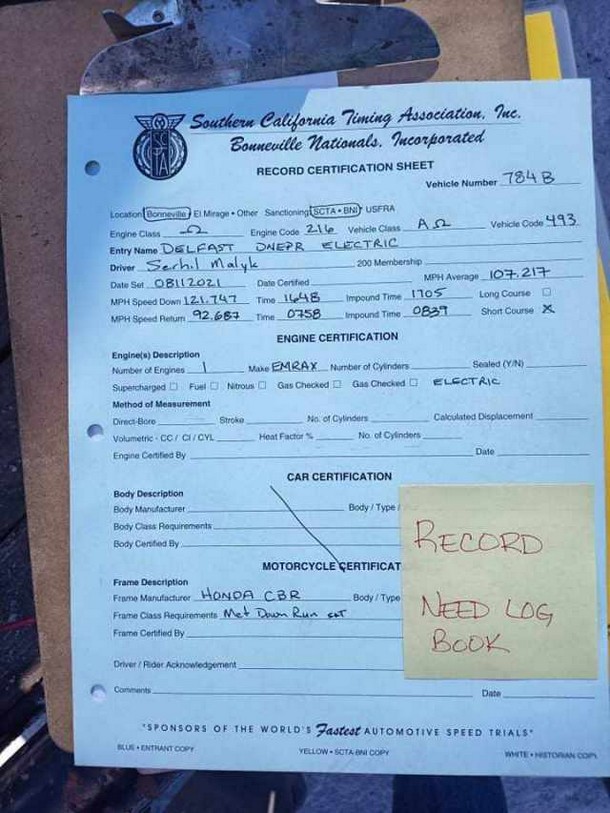 Southern California Timing Association, Inc.
Bonneville Nationals, Incorporated
SCTA
RECORD CERTIFICATION SHEET
Vehicle Number 784 B
Location: Bonneville • El Mirage • Other Sanctioning SCTA - BNI USFRA
Engine Class Ω Engine Code 216 Vehicle Class A Ω Vehicle Code 493
Entry Name DELFAST DNEPR ELECTRIC
Driver Serhii Malyk 200 Membership
Date Set 08112021 Date Certified MPH Average 107.217
MPH Speed Down 121.747 Time 1648 Impound Time 1705 Long Course ☐
MPH Speed Return 92.687 Time 0758 Impound Time 0839 Short Course X
ENGINE CERTIFICATION
Engine(s) Description
Number of Engines 1 Make EMRAX Number of Cylinders Sealed (Y/N)
Supercharged ☐ Fuel ☐ Nitrous ☐ Gas Checked ☐ Gas Checked ☐ ELECTRIC
Method of Measurement
Direct-Bore Stroke No. of Cylinders Calculated Displacement
Volumetric - CC / CI / CYL Heat Factor % No. of Cylinders
Engine Certified By Date
CAR CERTIFICATION
Body Description
Body Manufacturer Body / Type /
Body Class Requirements
Body Certified By
MOTORCYCLE CERTIFICAT
Frame Description
Frame Manufacturer HONDA CBR Body / Type
Frame Class Requirements Met Down Run
Frame Certified By
Driver / Rider Acknowledgement
Comments Date
RECORD
NEED LOG
BOOK
"SPONSORS OF THE WORLD'S Fastest AUTOMOTIVE SPEED TRIALS"
BLUE • ENTRANT COPY YELLOW • SCTA-BNI COPY WHITE • HISTORIAN COPY